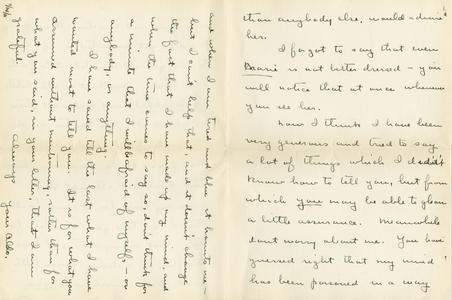 than anybody else, would admire
her.
I forgot to say that even
is not better dressed – you
will notice that at once whenever
you see her.
Now I think I have been
very generous and tried to say
a lot of things which I didn't
know how to tell you, but from
which you may be able to glean
a little assurance. Meanwhile
don't worry about me. You have
guessed right that my mind
has been poisoned in a way
and when I am tired and blue it haunts me –
but I can't help that, and it doesn't change
the fact that I have made up my mind, and
when the time comes to say so, don't think for
a minute that I will be afraid of myself – or
anybody, or anything.
I have saved till the last what I have
wanted most to tell you. It is for what you
assumed without mentioning, rather than for
what you said, in your letter, that I am
grateful.
Always
Your Aldo.